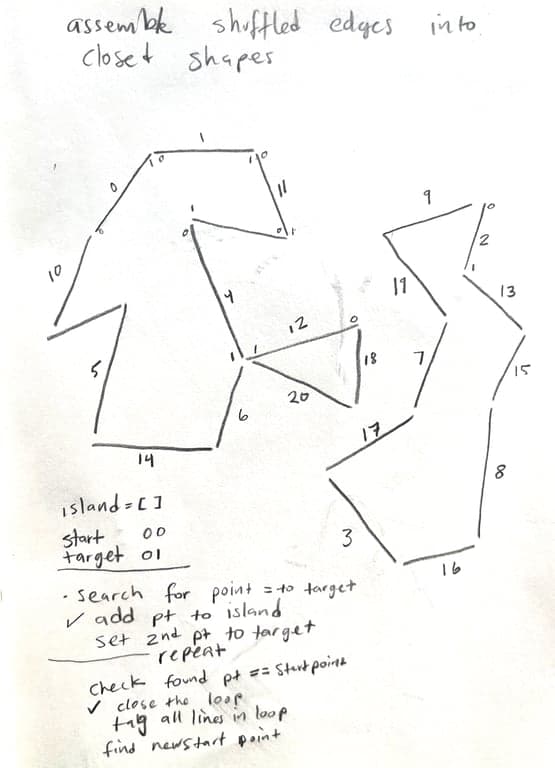 assemble shuffled edges into
closed shapes
1
0
1
0
1
0
0
11
0
1
1
0
10
4
5
1
1
12
0
18
20
6
14
9
0
2
1
19
13
7
15
17
8
3
16
island = [ ]
start 00
target 01
· search for point = to target
✓ add pt to island
set 2nd pt to target
repeat
check found pt == startpoint
✓ close the loop
tag all lines in loop
find new start point